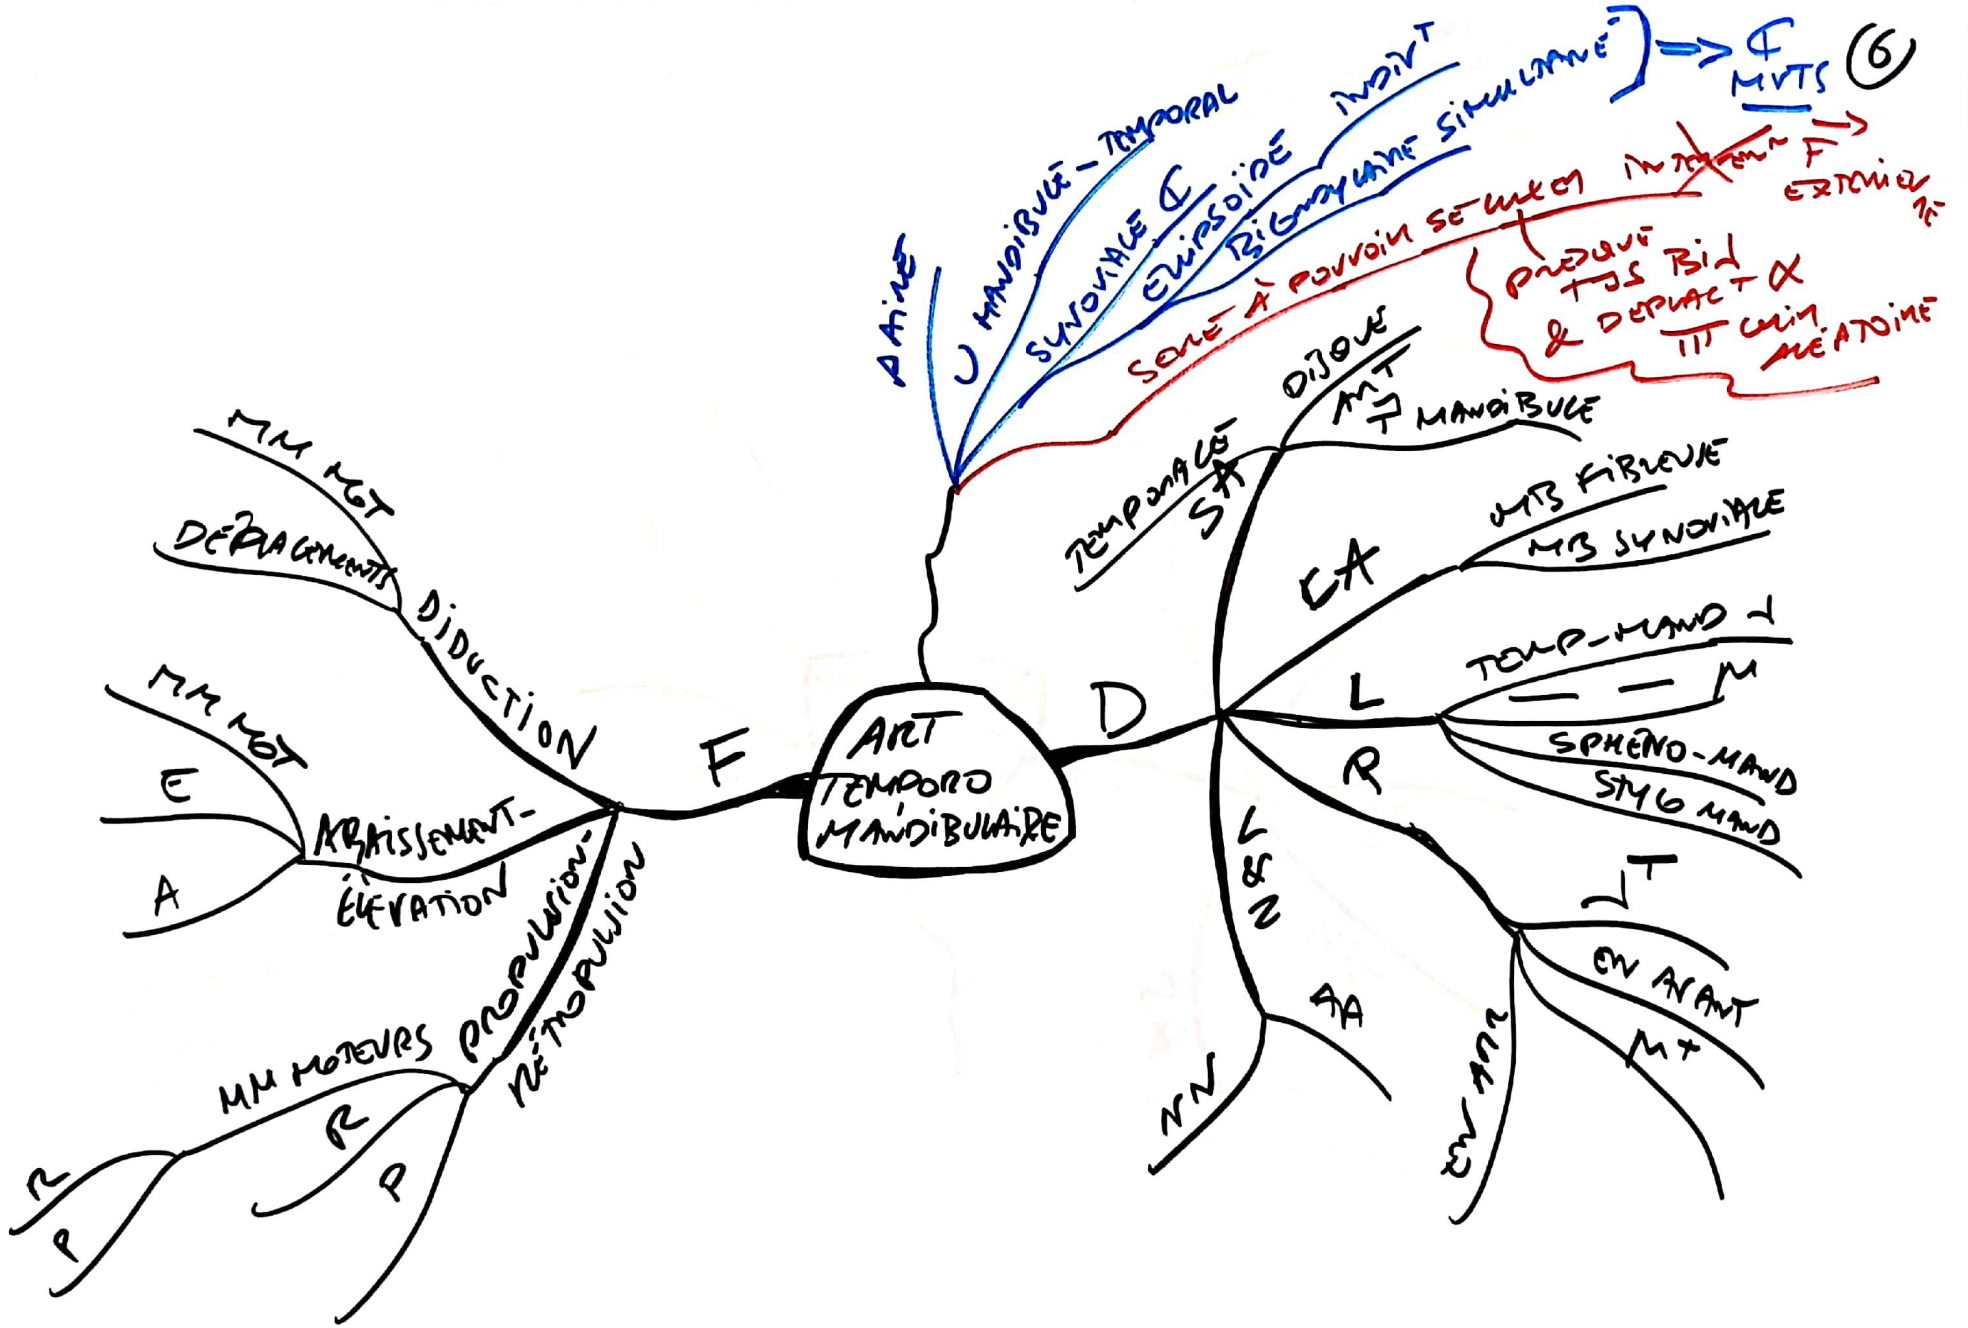 6
PAIRE
U MANDIBULE - TEMPORAL
SYNOVIALE ₵
ELLIPSOÏDE INDIVᵀ
BICONDYLAIRE SIMULTANÉ ] => ₵
MVTS
SEULE À POUVOIR SE LUXER
F
EXTERIEURE
PRESQUE
TJS BIL
& DEPLACT
ALÉATOIRE
ART
TEMPORO
MANDIBULAIRE
D
SA
TEMPORALE
DISQUE
ART
MANDIBULE
CA
MB FIBREUSE
MB SYNOVIALE
L
TEMP-MAND L
— — M
SPHÉNO-MAND
STYLO MAND
R
LT
EN AVANT
M+
EN ARR
V&N
AA
NN
F
DIDUCTION
MM MOT
DÉPLACEMENTS
ABAISSEMENT-
ÉLÉVATION
MM MOT
E
A
PROPULSION-
RÉTROPULSION
MM MOTEURS
R
P
R
P